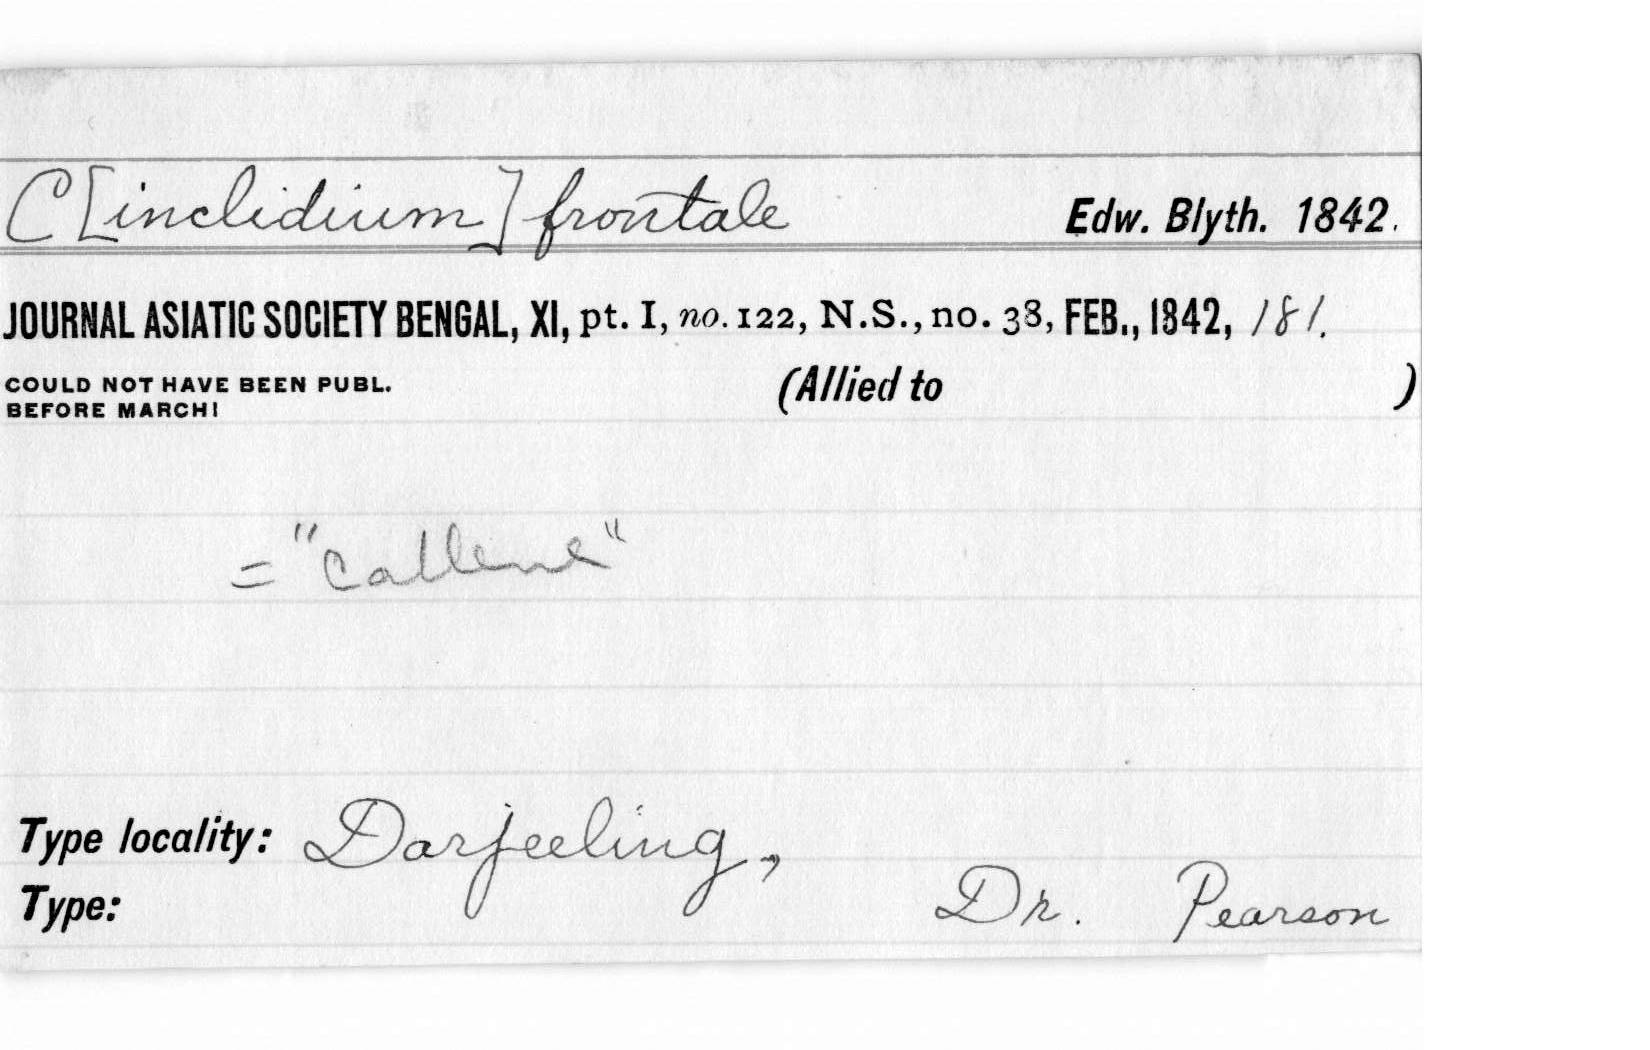 C[inclidium] frontale Edw. Blyth. 1842.
JOURNAL ASIATIC SOCIETY BENGAL, XI, pt. I, no. 122, N.S., no. 38, FEB., 1842, 181.
COULD NOT HAVE BEEN PUBL. (Allied to )
BEFORE MARCH!
= "Callene"
Type locality: Darjeeling,
Type: Dr. Pearson